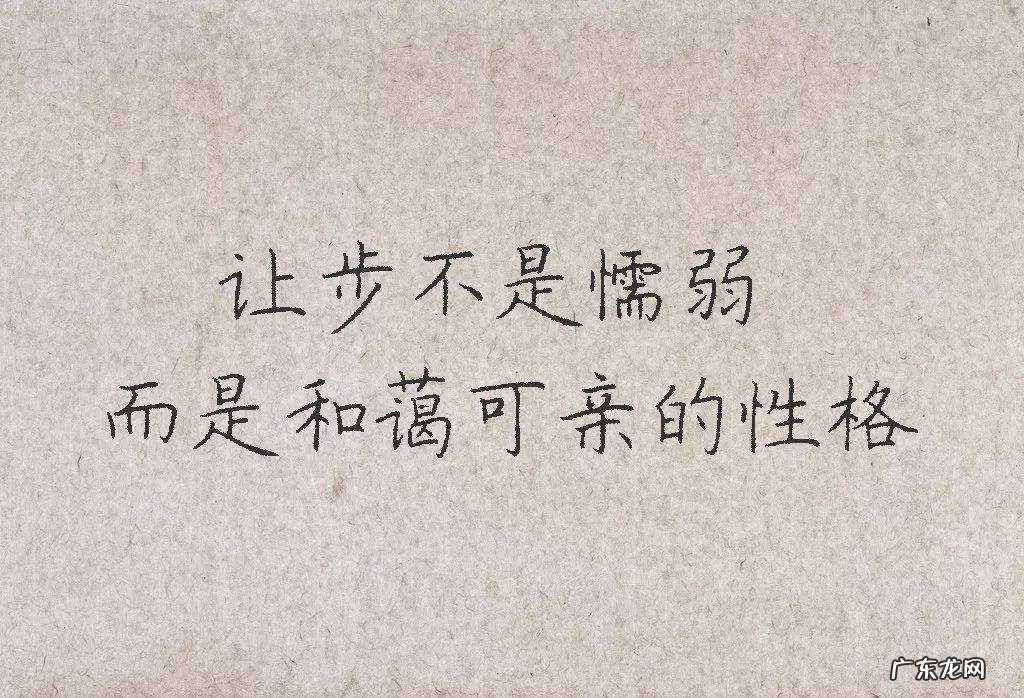 让步不是懦弱
而是和蔼可亲的性格
广东龙网